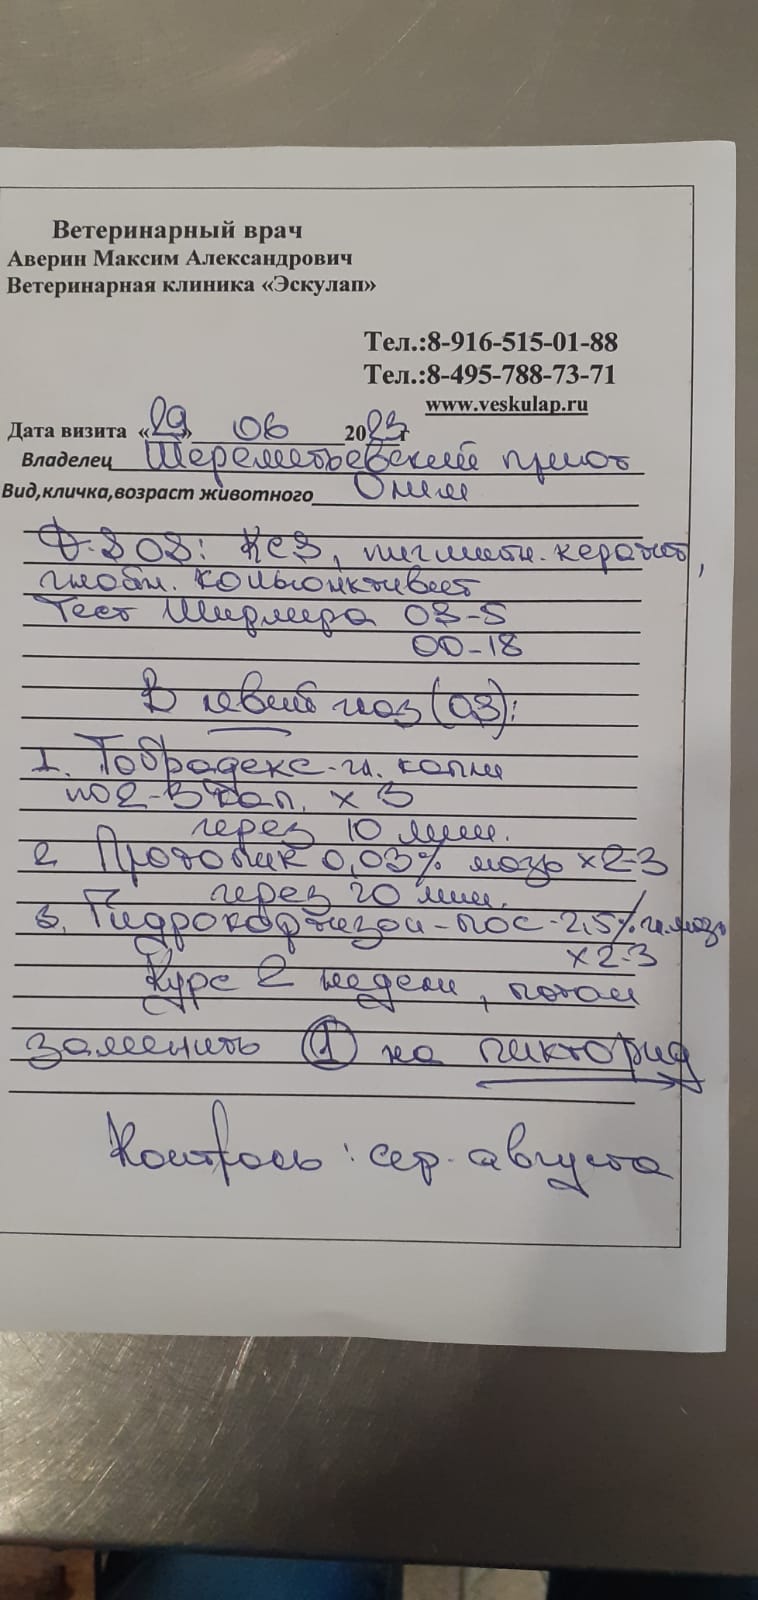 Ветеринарный врач
Аверин Максим Александрович
Ветеринарная клиника «Эскулап»
Тел.:8-916-515-01-88
Тел.:8-495-788-73-71
www.veskulap.ru
Дата визита «29» 06 2023г
Владелец Шереметьевский приют
Вид,кличка,возраст животного
D.S OS: КСЗ, пигментн. кератит,
конъюнктивит
Тест Ширмера OS-5
OD-18
В левый глаз (OS):
1. Тобрадекс-гл. капли
по 2-3 кап. х 3
через 10 мин.
2 Протопик 0,03% мазь х2-3
через 20 мин.
3. Гидрокортизон-ПОС-2,5% гл.мазь
х2-3
Курс 2 недели, потом
заменить 1 на
Контроль: сер. августа